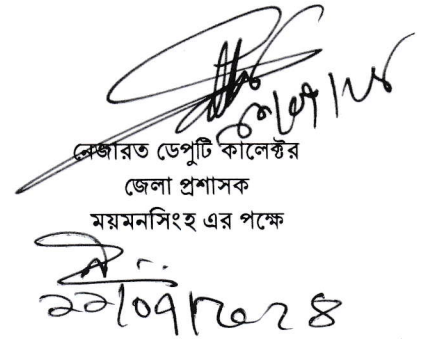 নেজারত ডেপুটি কালেক্টর
জেলা প্রশাসক
ময়মনসিংহ এর পক্ষে
২২/০৭/২০২৪